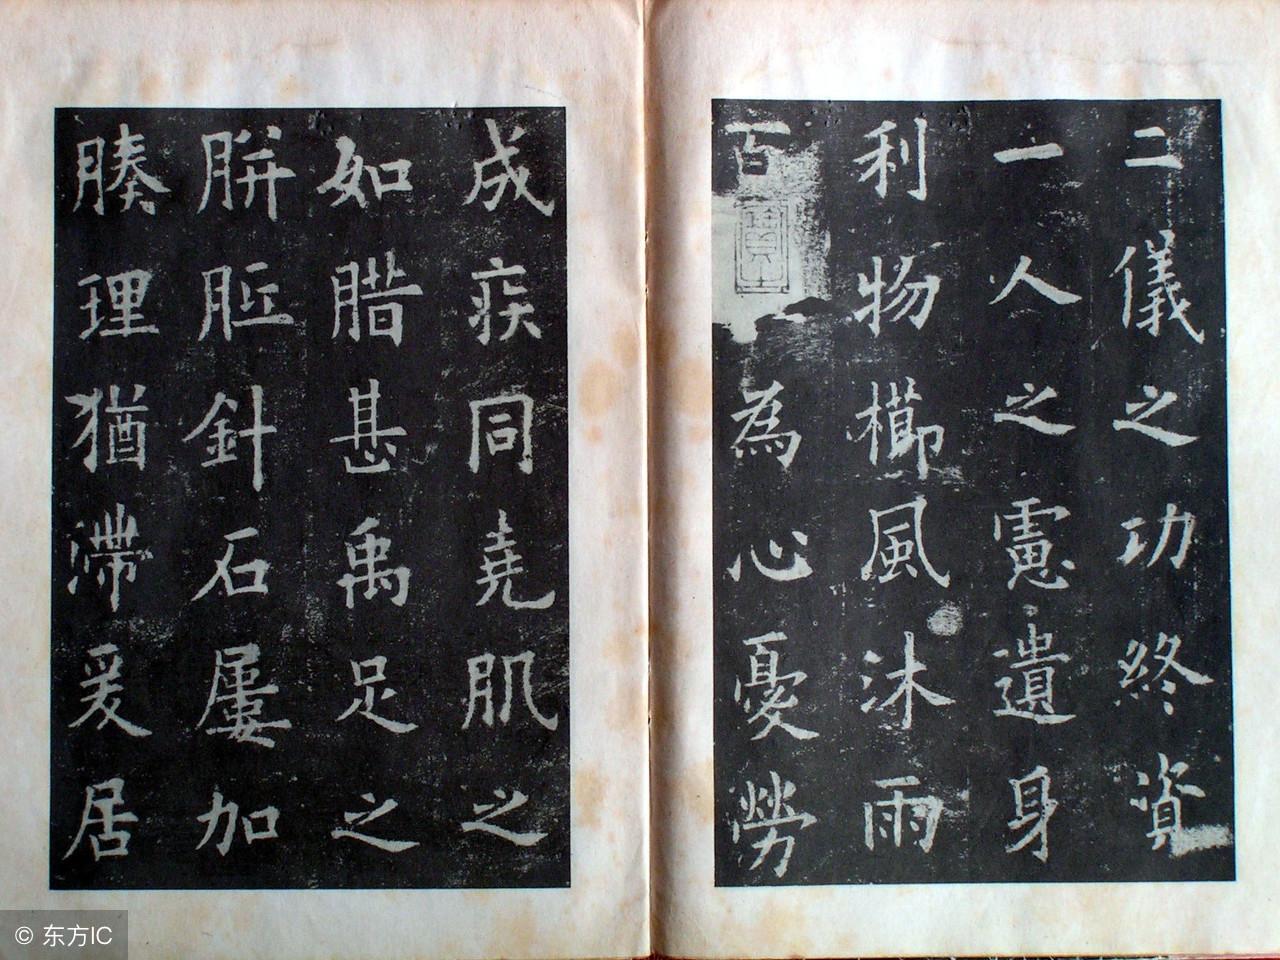 二儀之功終資
一人之慮遺身
利物櫛風沐雨
百為心憂勞
成疾同堯肌之
如腊甚禹足之
胼胝針石屢加
腠理猶滯爰居
© 东方IC